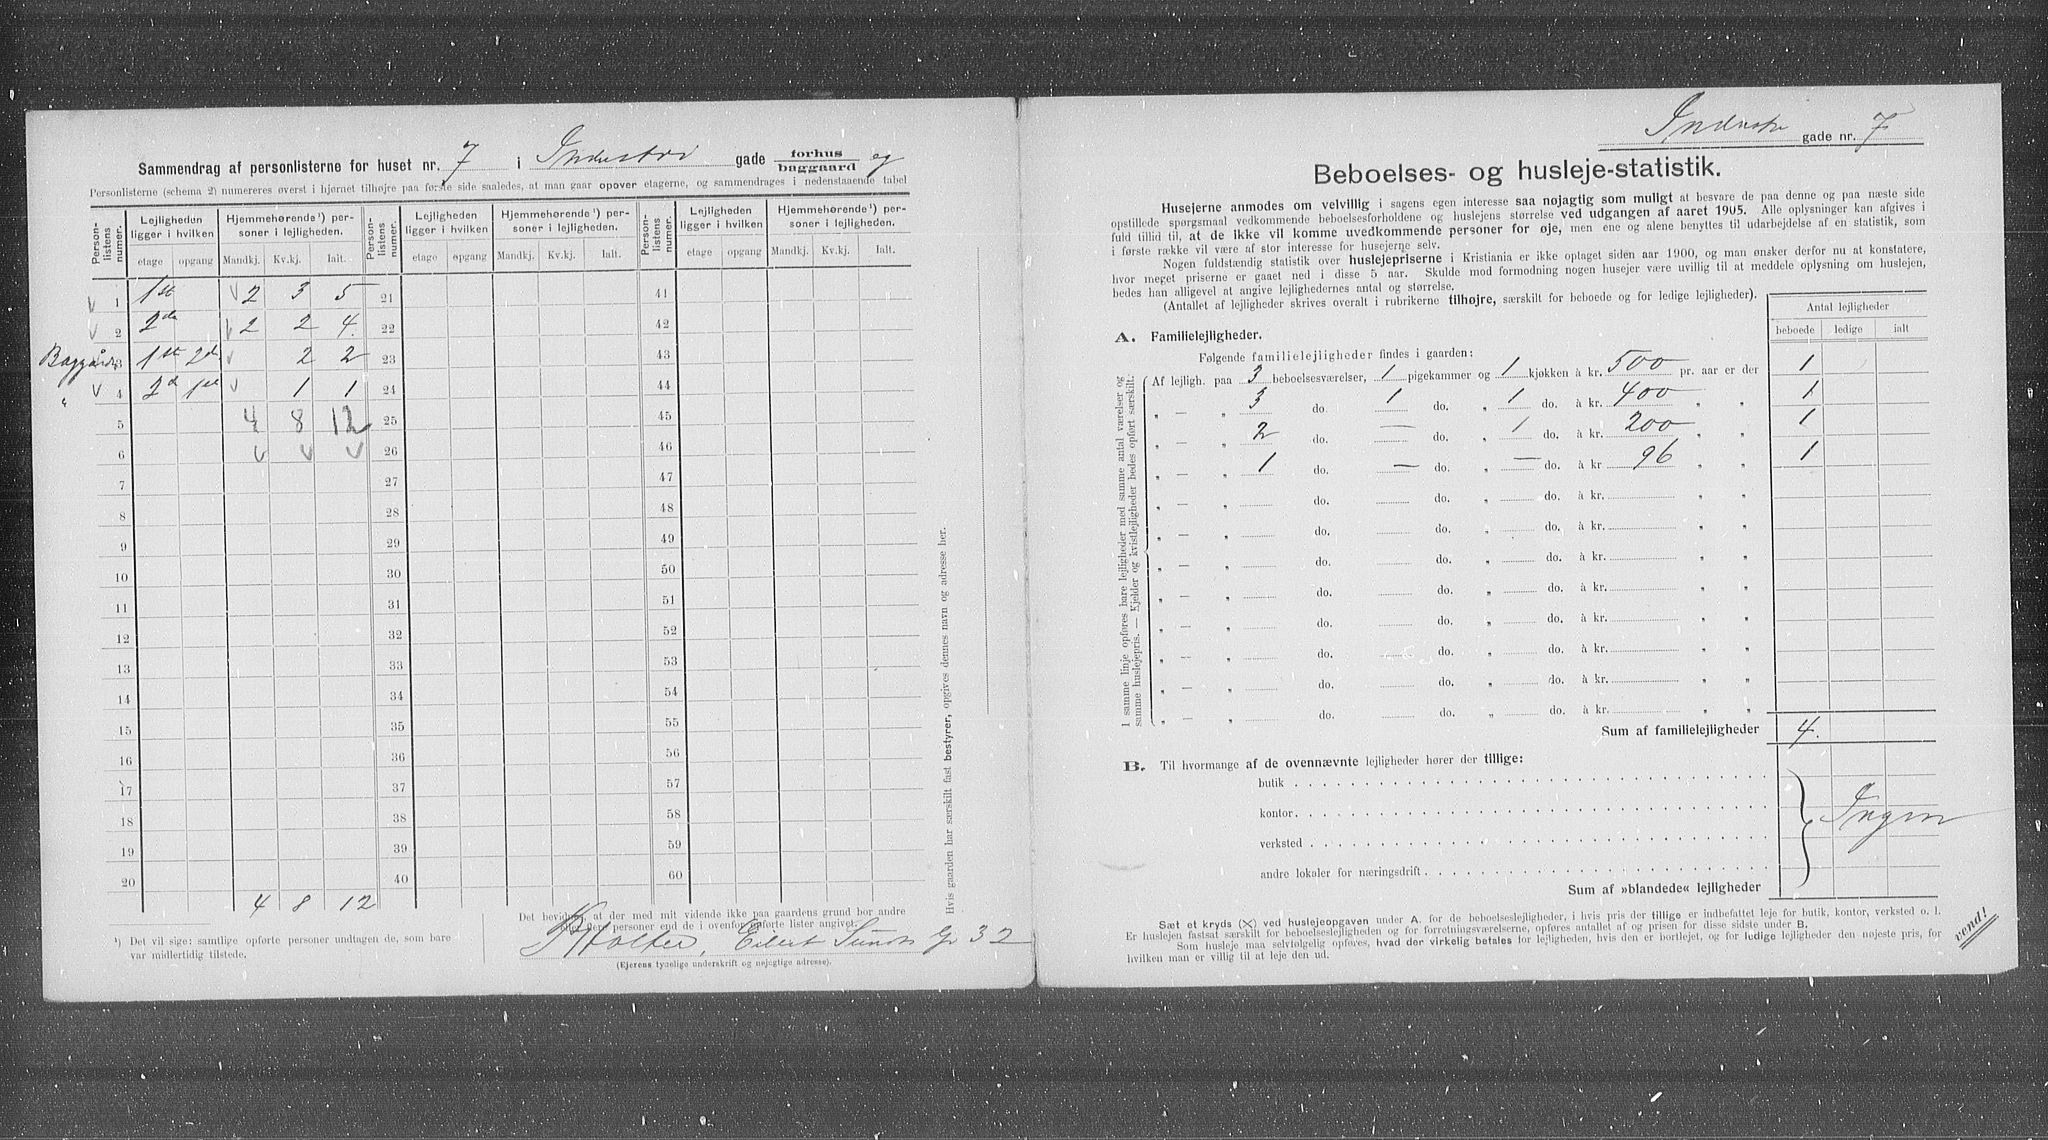 Sammendrag af personlisterne for huset nr. 7 i Industri gade forhus baggaard og
Personlisterne (schema 2) numereres øverst i hjørnet tilhøjre paa første side saaledes, at man gaar opover etagerne, og sammendrages i nedenstaaende tabel
Person-listens nummer. Lejligheden ligger i hvilken Hjemmehørende¹) personer i lejligheden. Person-listens numer. Lejligheden ligger i hvilken Hjemmehørende¹) personer i lejligheden. Person-listens numer. Lejligheden ligger i hvilken Hjemmehørende¹) personer i lejligheden.
etage opgang Mandkj. Kv.kj. Ialt. etage opgang Mandkj. Kv.kj. Ialt. etage opgang Mandkj. Kv.kj. Ialt.
1 1st 2 3 5 21 41
2 2de 2 2 4. 22 42
3 1st 2 2 23 43
4 2d 1 1 24 44
5 4 8 12 25 45
6 26 46
7 27 47
8 28 48
9 29 49
10 30 50
11 31 51
12 32 52
13 33 53
14 34 54
15 35 55
16 36 56
17 37 57
18 38 58
19 39 59
20 40 60
4 8 12
¹) Det vil sige: samtlige opførte personer undtagen de, som bare
var midlertidig tilstede.
Det bevidnes, at der med mit vidende ikke paa gaardens grund bor andre
eller flere personer end de i ovenfor opførte lister angivet.
Holter, Eilert Sunds Gd 32
(Ejerens tydelige underskrift og nøjagtige adresse).
Hvis gaarden har særskilt fast bestyrer, opgives dennes navn og adresse her.
gade nr. 7
Beboelses- og husleje-statistik.
Husejerne anmodes om velvillig i sagens egen interesse saa nøjagtig som muligt at besvare de paa denne og paa næste side
opstillede spørgsmaal vedkommende beboelsesforholdene og huslejens størrelse ved udgangen af aaret 1905. Alle oplysninger kan afgives i
fuld tillid til, at de ikke vil komme uvedkommende personer for øje, men ene og alene benyttes til udarbejdelse af en statistik, som
i første række vil være af stor interesse for husejerne selv.
Nogen fuldstændig statistik over huslejepriserne i Kristiania er ikke optaget siden aar 1900, og man ønsker derfor nu at konstatere,
hvor meget priserne er gaaet ned i disse 5 aar. Skulde mod formodning nogen husejer være uvillig til at meddele oplysning om huslejen,
bedes han alligevel at angive lejlighedernes antal og størrelse.
(Antallet af lejligheder skrives overalt i rubrikerne tilhøjre, særskilt for beboede og for ledige lejligheder).
Antal lejligheder
beboede ledige ialt
A. Familielejligheder.
Følgende familielejligheder findes i gaarden:
Af lejligh. paa 3 beboelsesværelser, 1 pigekammer og 1 kjøkken à kr. 500 pr. aar er der 1
„ — „ 3 do. 1 do. „ 1 do. à kr. 400 „ „ 1
„ — „ 2 do. — do. „ 1 do. à kr. 200 „ „ 1
„ — „ 1 do. — do. „ — do. à kr 96 „ „ 1
„ — „ do. do. „ do. à kr. „ „
„ — „ do. do. „ do. à kr. „ „
„ — „ do. do. „ do. à kr. „ „
„ — „ do. do. „ do. à kr. „ „
„ — „ do. do. „ do. à kr. „ „
„ — „ do. do. „ do. à kr. „ „
„ — „ do. do. „ do. à kr. „ „
„ — „ do. do. „ do. à kr. „ „
I samme linje opføres bare lejligheder med samme antal værelser og
samme huslejepris. — Kjelder og kvistlejligheder bedes opført særskilt.
Sum af familielejligheder 4.
B. Til hvormange af de ovennævnte lejligheder hører der tillige:
butik
kontor
verksted
andre lokaler for næringsdrift
Ingen
Sum af »blandede« lejligheder
Sæt et kryds (X) ved huslejeopgaven under A. for de beboelseslejligheder, i hvis pris der tillige er indbefattet leje for butik, kontor, verksted o. l.
Er huslejen fastsat særskilt for beboelseslejligheden og for forretningsværelserne, opføres antallet af og prisen for disse sidste under B.
Som husleje maa selvfølgelig opføres, hvad der virkelig betales for lejligheden, hvis den er bortlejet, og for ledige lejligheder den nøjeste pris, for
hvilken man er villig til at leje den ud.
vend!